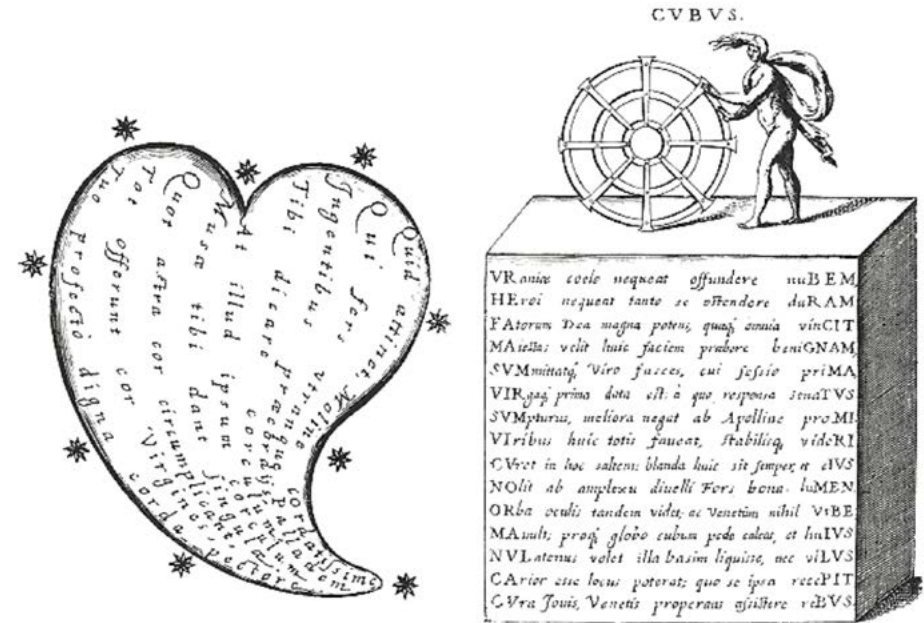 Quid attinet, Moline cordatissime
Qui fers Palladem
Ingentibus præcordijs
Tibi dicare corculum
At illud ipsum corculum
Musæ tibi dant singulæ
Quot astra cor circumplicant,
Tot offerunt cor Virgines,
Tuo profectò digna corda pectore
CVBVS.
VRaniæ coelo nequeat offundere nuBEM,
HEroi nequeat tanto se ostendere duRAM
FAtorum Dea magna potens, quaq́; omnia vinCIT
MAiestas; velit huic faciem præbere beniGNAM,
SVMmittatq́; Viro fasces, cui sessio priMA,
VIRgaq́; prima data est: à quo responsa senaTVS
SVMpturus, meliora negat ab Apolline proMI.
VIribus huic totis faueat, stabilisq́; videRI
CVret in hoc saltem: blanda huic sit semper, et eIVS
NOlit ab amplexu diuelli Fors bona. luMEN.
ORba oculis tandem videt; ac Venetûm nihil VrBE
MAuult; proq́; globo cubum pede calcat, et huIVS
NVLatenus volet illa basim liquisse, nec viLVS
CArior esse locus poterat; quo se ipsa recePIT
CVra Jouis, Venetis properans assistere reBVS.